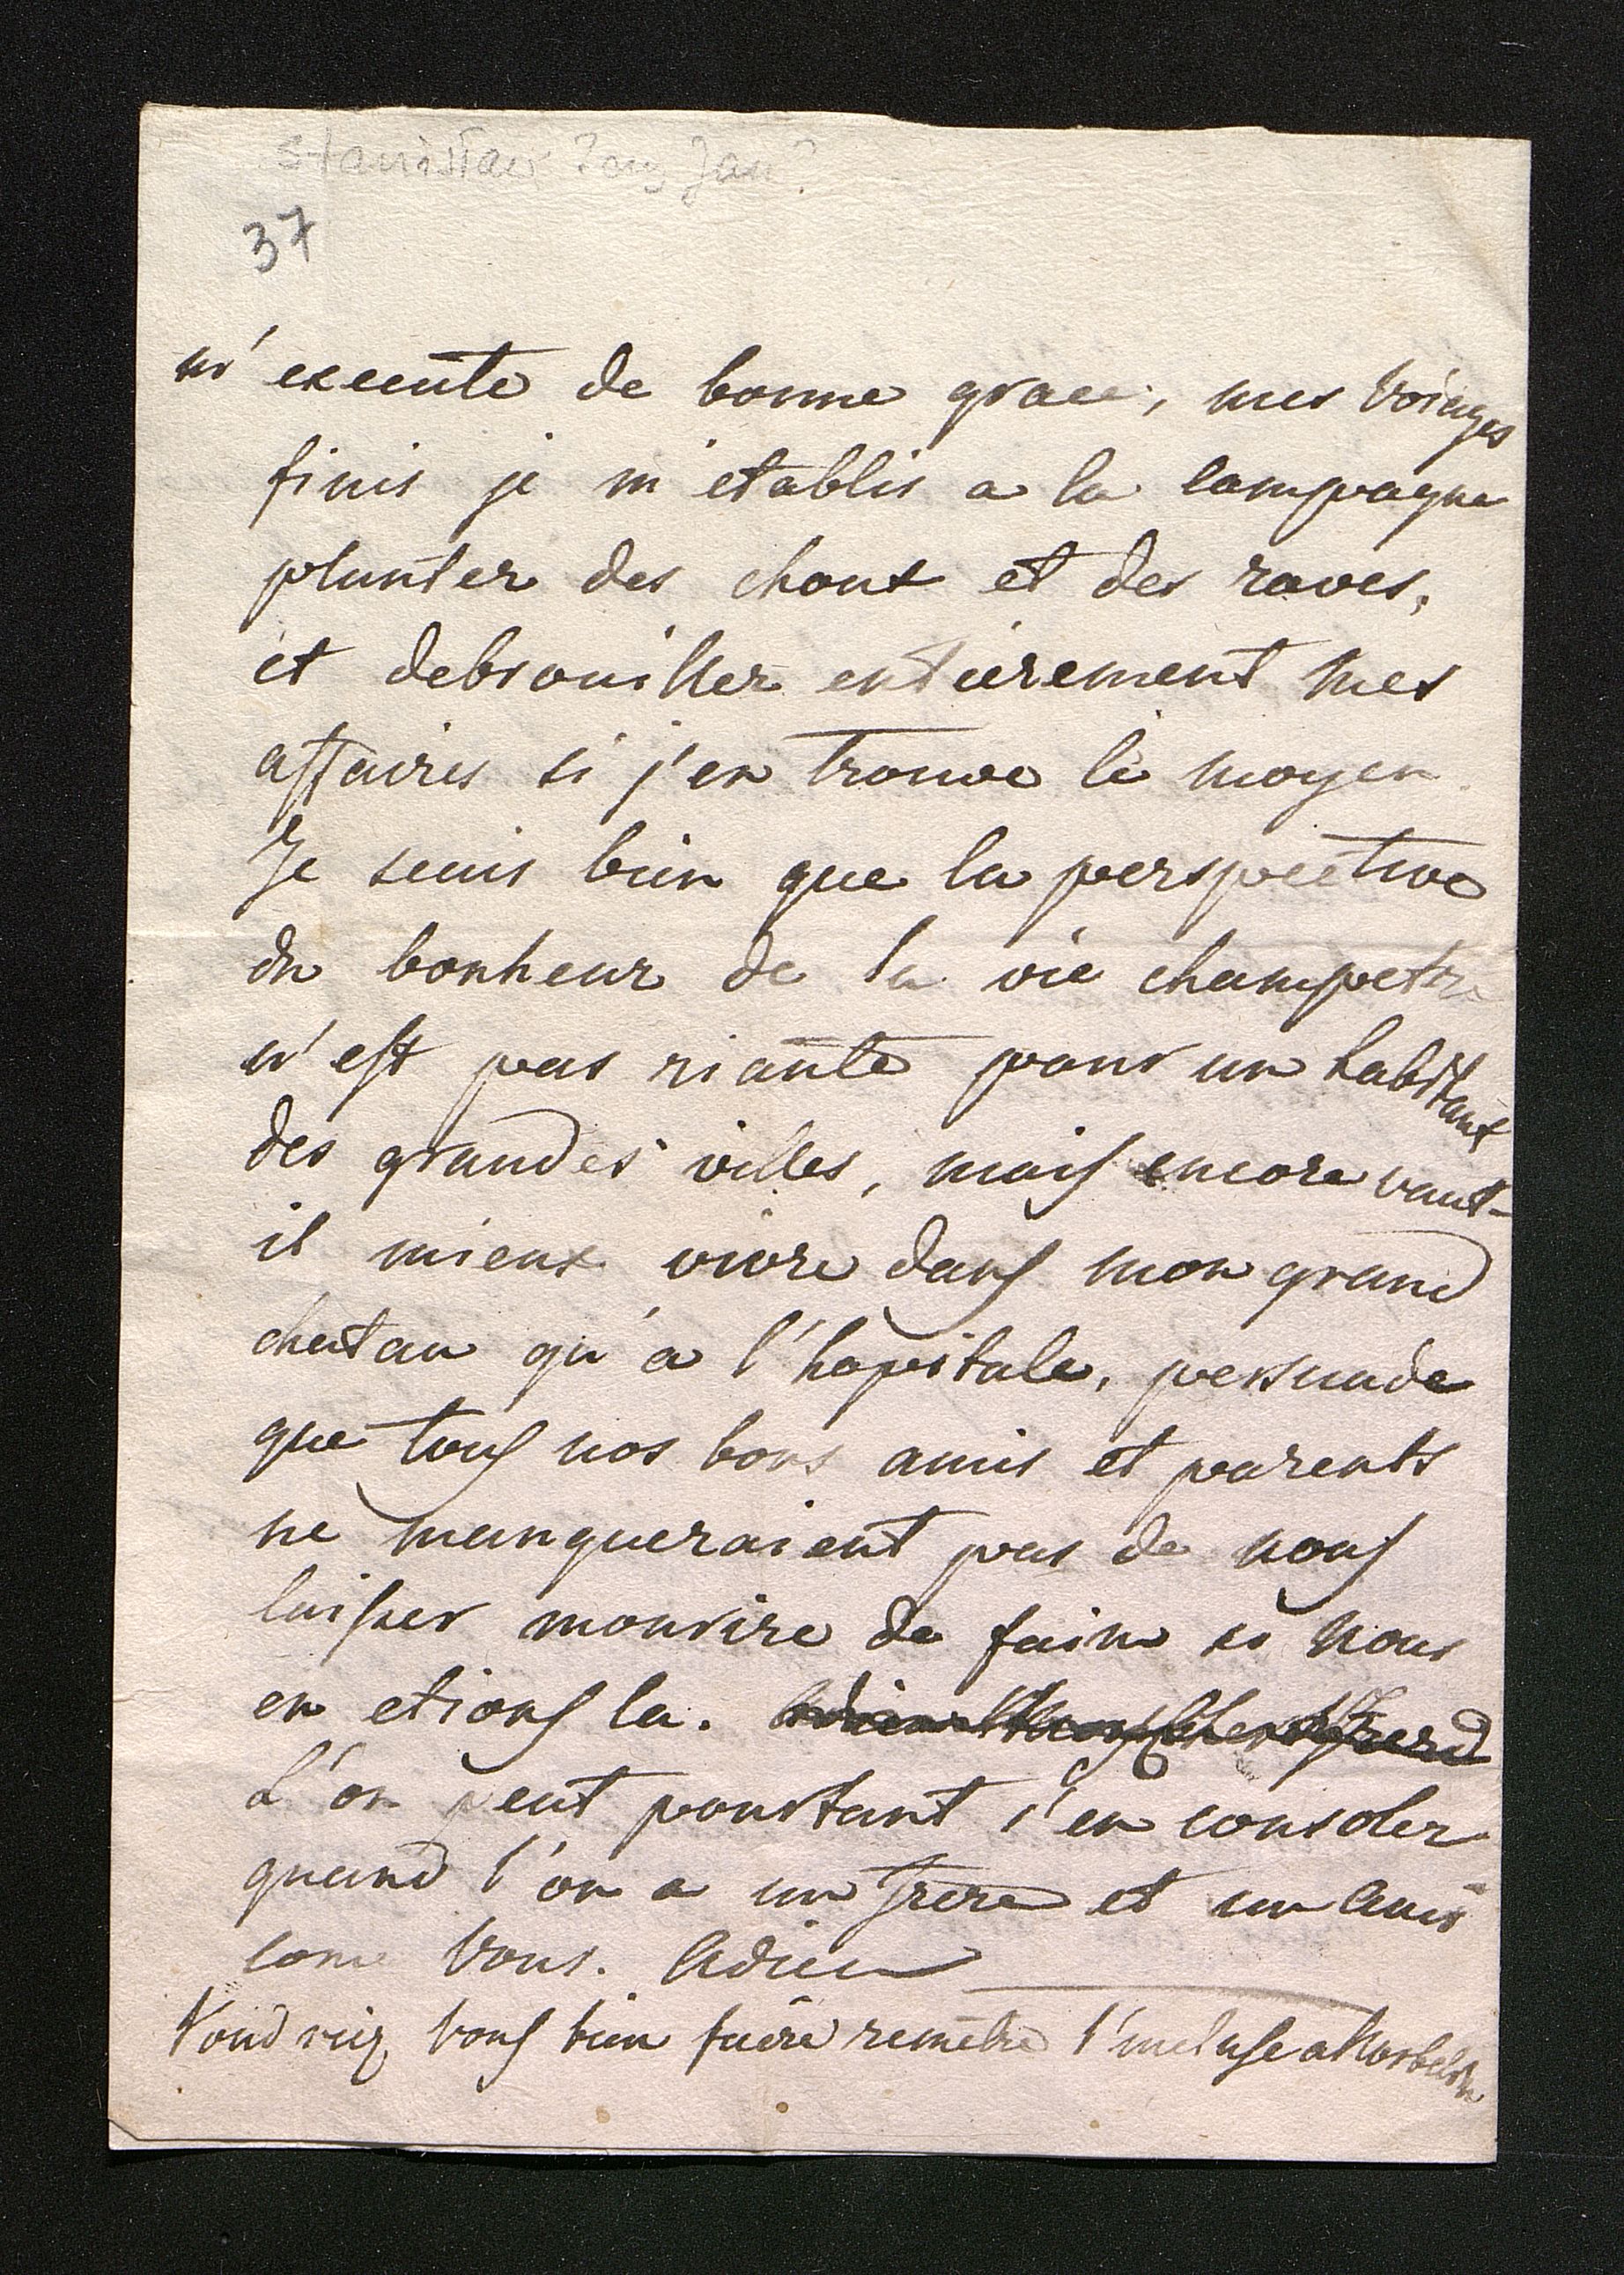 Stanisław czy Jan?
37
m'execute de bonne grace, mes voiages
finis je m'etablis a la campagne
planter des choux et des raves,
et debrouiller entierement mes
affaires si j'en trouve le moyen
Je sens bien que la perspective
du bonheur de la vie champetre
n'est pas riante pour un habitant
des grandes villes, mais encore vaut-
il mieux vivre dans mon grand
chatau qu'a l'hôpitale, persuade
que tous nos bons amis et parents
ne manqueraient pas de nous
laisser mourire de faim si nous
en etions la.
L'on peut pourtant s'en consoler
quand l'on a un frere et un ami
come vous. Adieu
Voudriez vous bien faire remetre l'incluse a